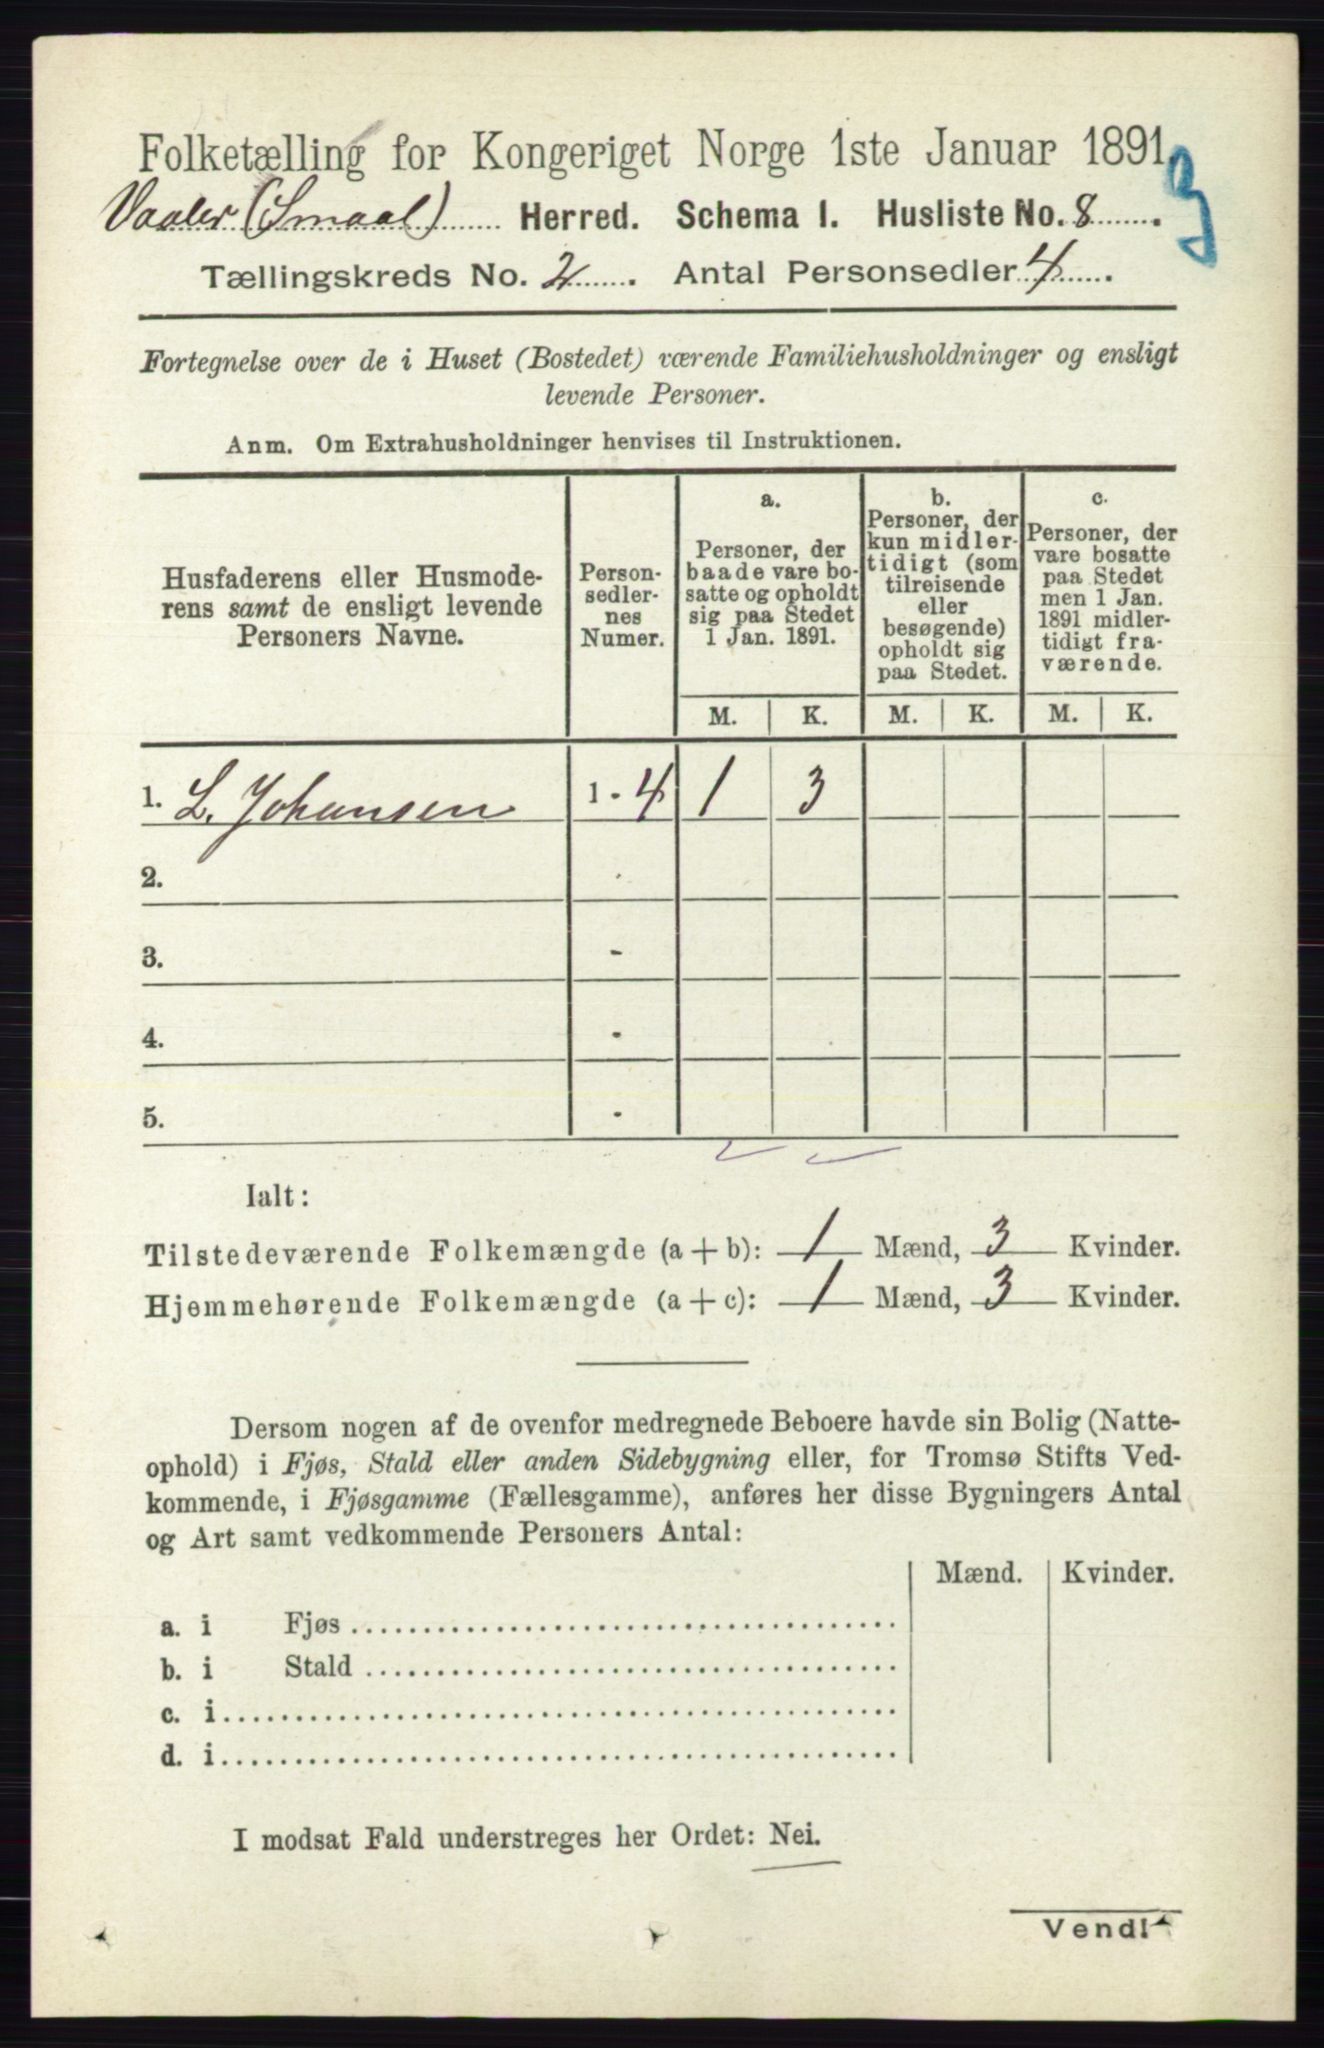 Folketælling for Kongeriget Norge 1ste Januar 1891.
3
Vaaler (Smaal) Herred. Schema I. Husliste No. 8.
Tællingskreds No. 2. Antal Personsedler 4.
Fortegnelse over de i Huset (Bostedet) værende Familiehusholdninger og ensligt
levende Personer.
Anm. Om Extrahusholdninger henvises til Instruktionen.
Husfaderens eller Husmode-
rens samt de ensligt levende
Personers Navne.
Person-
sedler-
nes
Numer.
a.
Personer, der
baade vare bo-
satte og opholdt
sig paa Stedet
1 Jan. 1891.
b.
Personer, der
kun midler-
tidigt (som
tilreisende
eller
besøgende)
opholdt sig
paa Stedet.
c.
Personer, der
vare bosatte
paa Stedet
men 1 Jan.
1891 midler-
tidigt fra-
værende.
M. K. M. K. M. K.
1. L. Johansen 1 - 4 1 3
2. -
3. -
4. -
5. -
Ialt:
Tilstedeværende Folkemængde (a + b): 1 Mænd, 3 Kvinder.
Hjemmehørende Folkemængde (a + c): 1 Mænd, 3 Kvinder.
Dersom nogen af de ovenfor medregnede Beboere havde sin Bolig (Natte-
ophold) i Fjøs, Stald eller anden Sidebygning eller, for Tromsø Stifts Ved-
kommende, i Fjøsgamme (Fællesgamme), anføres her disse Bygningers Antal
og Art samt vedkommende Personers Antal:
Mænd. Kvinder.
a. i Fjøs
b. i Stald
c. i
d. i
I modsat Fald understreges her Ordet: Nei.
Vend!